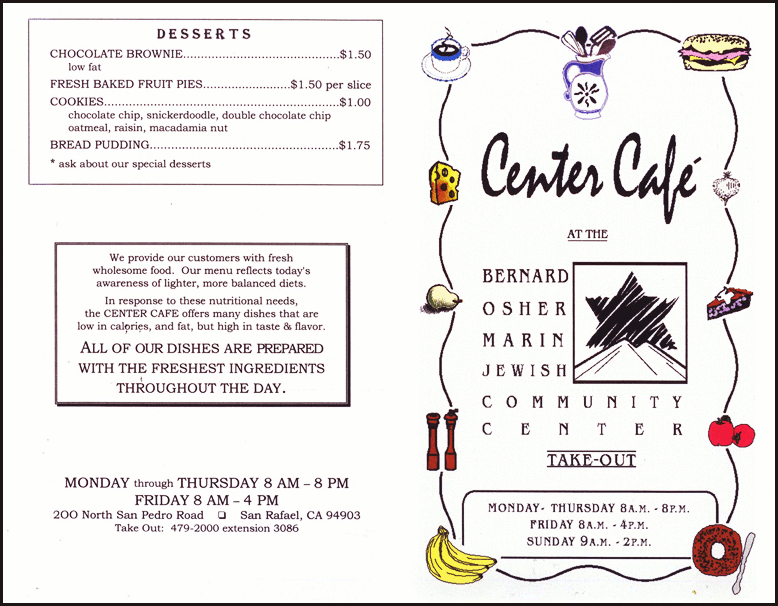 DESSERTS
CHOCOLATE BROWNIE................................................$1.50
low fat
FRESH BAKED FRUIT PIES..........................$1.50 per slice
COOKIES.....................................................................$1.00
chocolate chip, snickerdoodle, double chocolate chip
oatmeal, raisin, macadamia nut
BREAD PUDDING........................................................$1.75
* ask about our special desserts
We provide our customers with fresh
wholesome food. Our menu reflects today's
awareness of lighter, more balanced diets.
In response to these nutritional needs,
the CENTER CAFE offers many dishes that are
low in calories, and fat, but high in taste & flavor.
ALL OF OUR DISHES ARE PREPARED
WITH THE FRESHEST INGREDIENTS
THROUGHOUT THE DAY.
MONDAY through THURSDAY 8 AM – 8 PM
FRIDAY 8 AM – 4 PM
200 North San Pedro Road ❑ San Rafael, CA 94903
Take Out: 479-2000 extension 3086
Center Café
AT THE
BERNARD
OSHER
MARIN
JEWISH
COMMUNITY
CENTER
TAKE-OUT
MONDAY- THURSDAY 8A.M. - 8P.M.
FRIDAY 8A.M. - 4P.M.
SUNDAY 9A.M. - 2P.M.